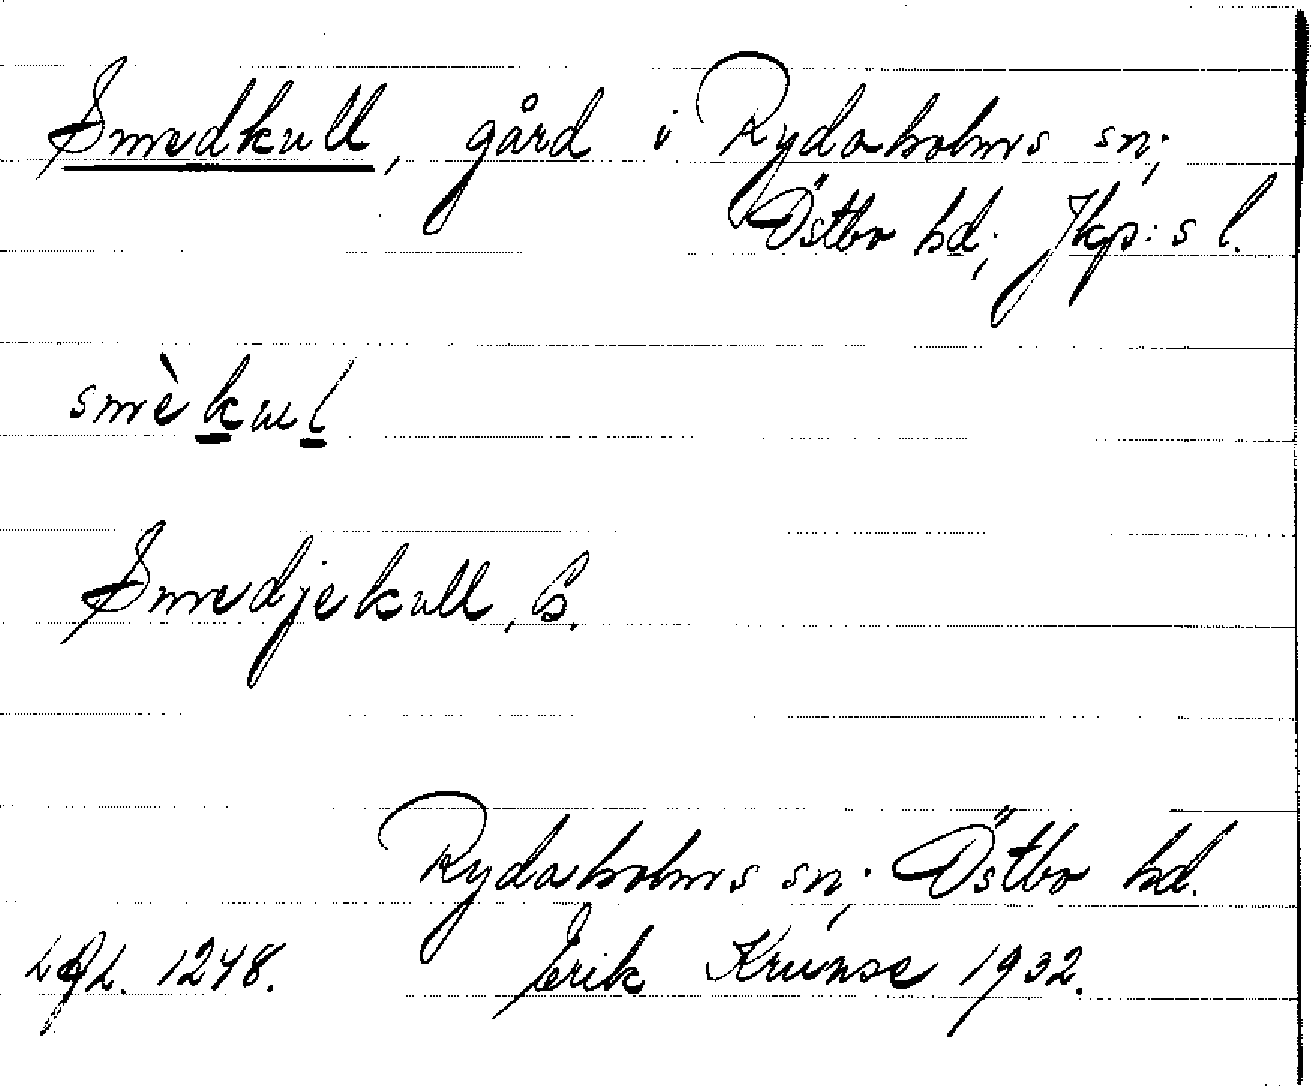 Smedkull, gård i Rydaholms sn;
Östbo hd; Jkp:s l.
smèkul
Smedjekull, G.
Rydaholms sn; Östbo hd.
Erik Krunse 1932.
1248.